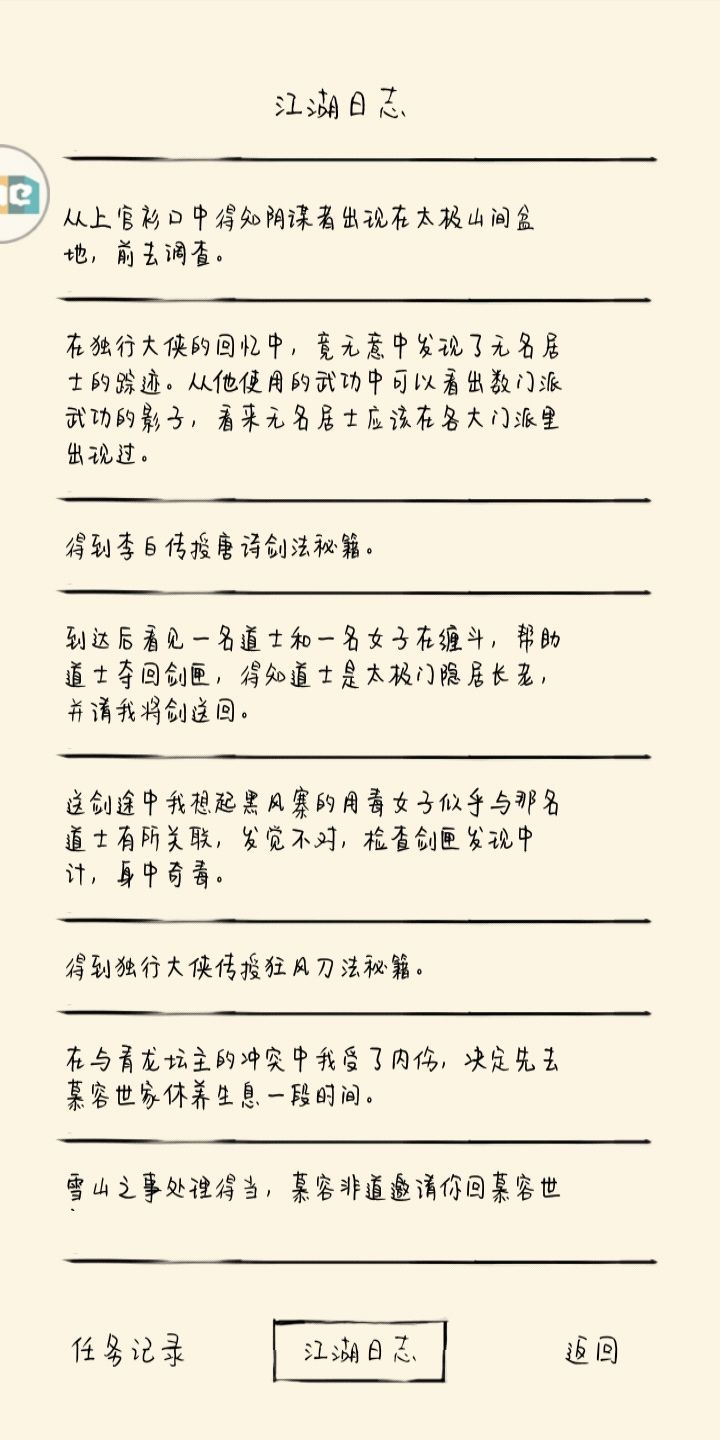 江湖日志
从上官衫口中得知阴谋者出现在太极山间盆
地，前去调查。
在独行大侠的回忆中，竟无意中发现了无名居
士的踪迹。从他使用的武功中可以看出数门派
武功的影子，看来无名居士应该在各大门派里
出现过。
得到李白传授唐诗剑法秘籍。
到达后看见一名道士和一名女子在缠斗，帮助
道士夺回剑匣，得知道士是太极门隐居长老，
并请我将剑送回。
送剑途中我想起黑风寨的用毒女子似乎与那名
道士有所关联，发觉不对，检查剑匣发现中
计，身中奇毒。
得到独行大侠传授狂风刀法秘籍。
在与青龙坛主的冲突中我受了内伤，决定先去
慕容世家休养生息一段时间。
雪山之事处理得当，慕容非道邀请你回慕容世
任务记录
江湖日志
返回